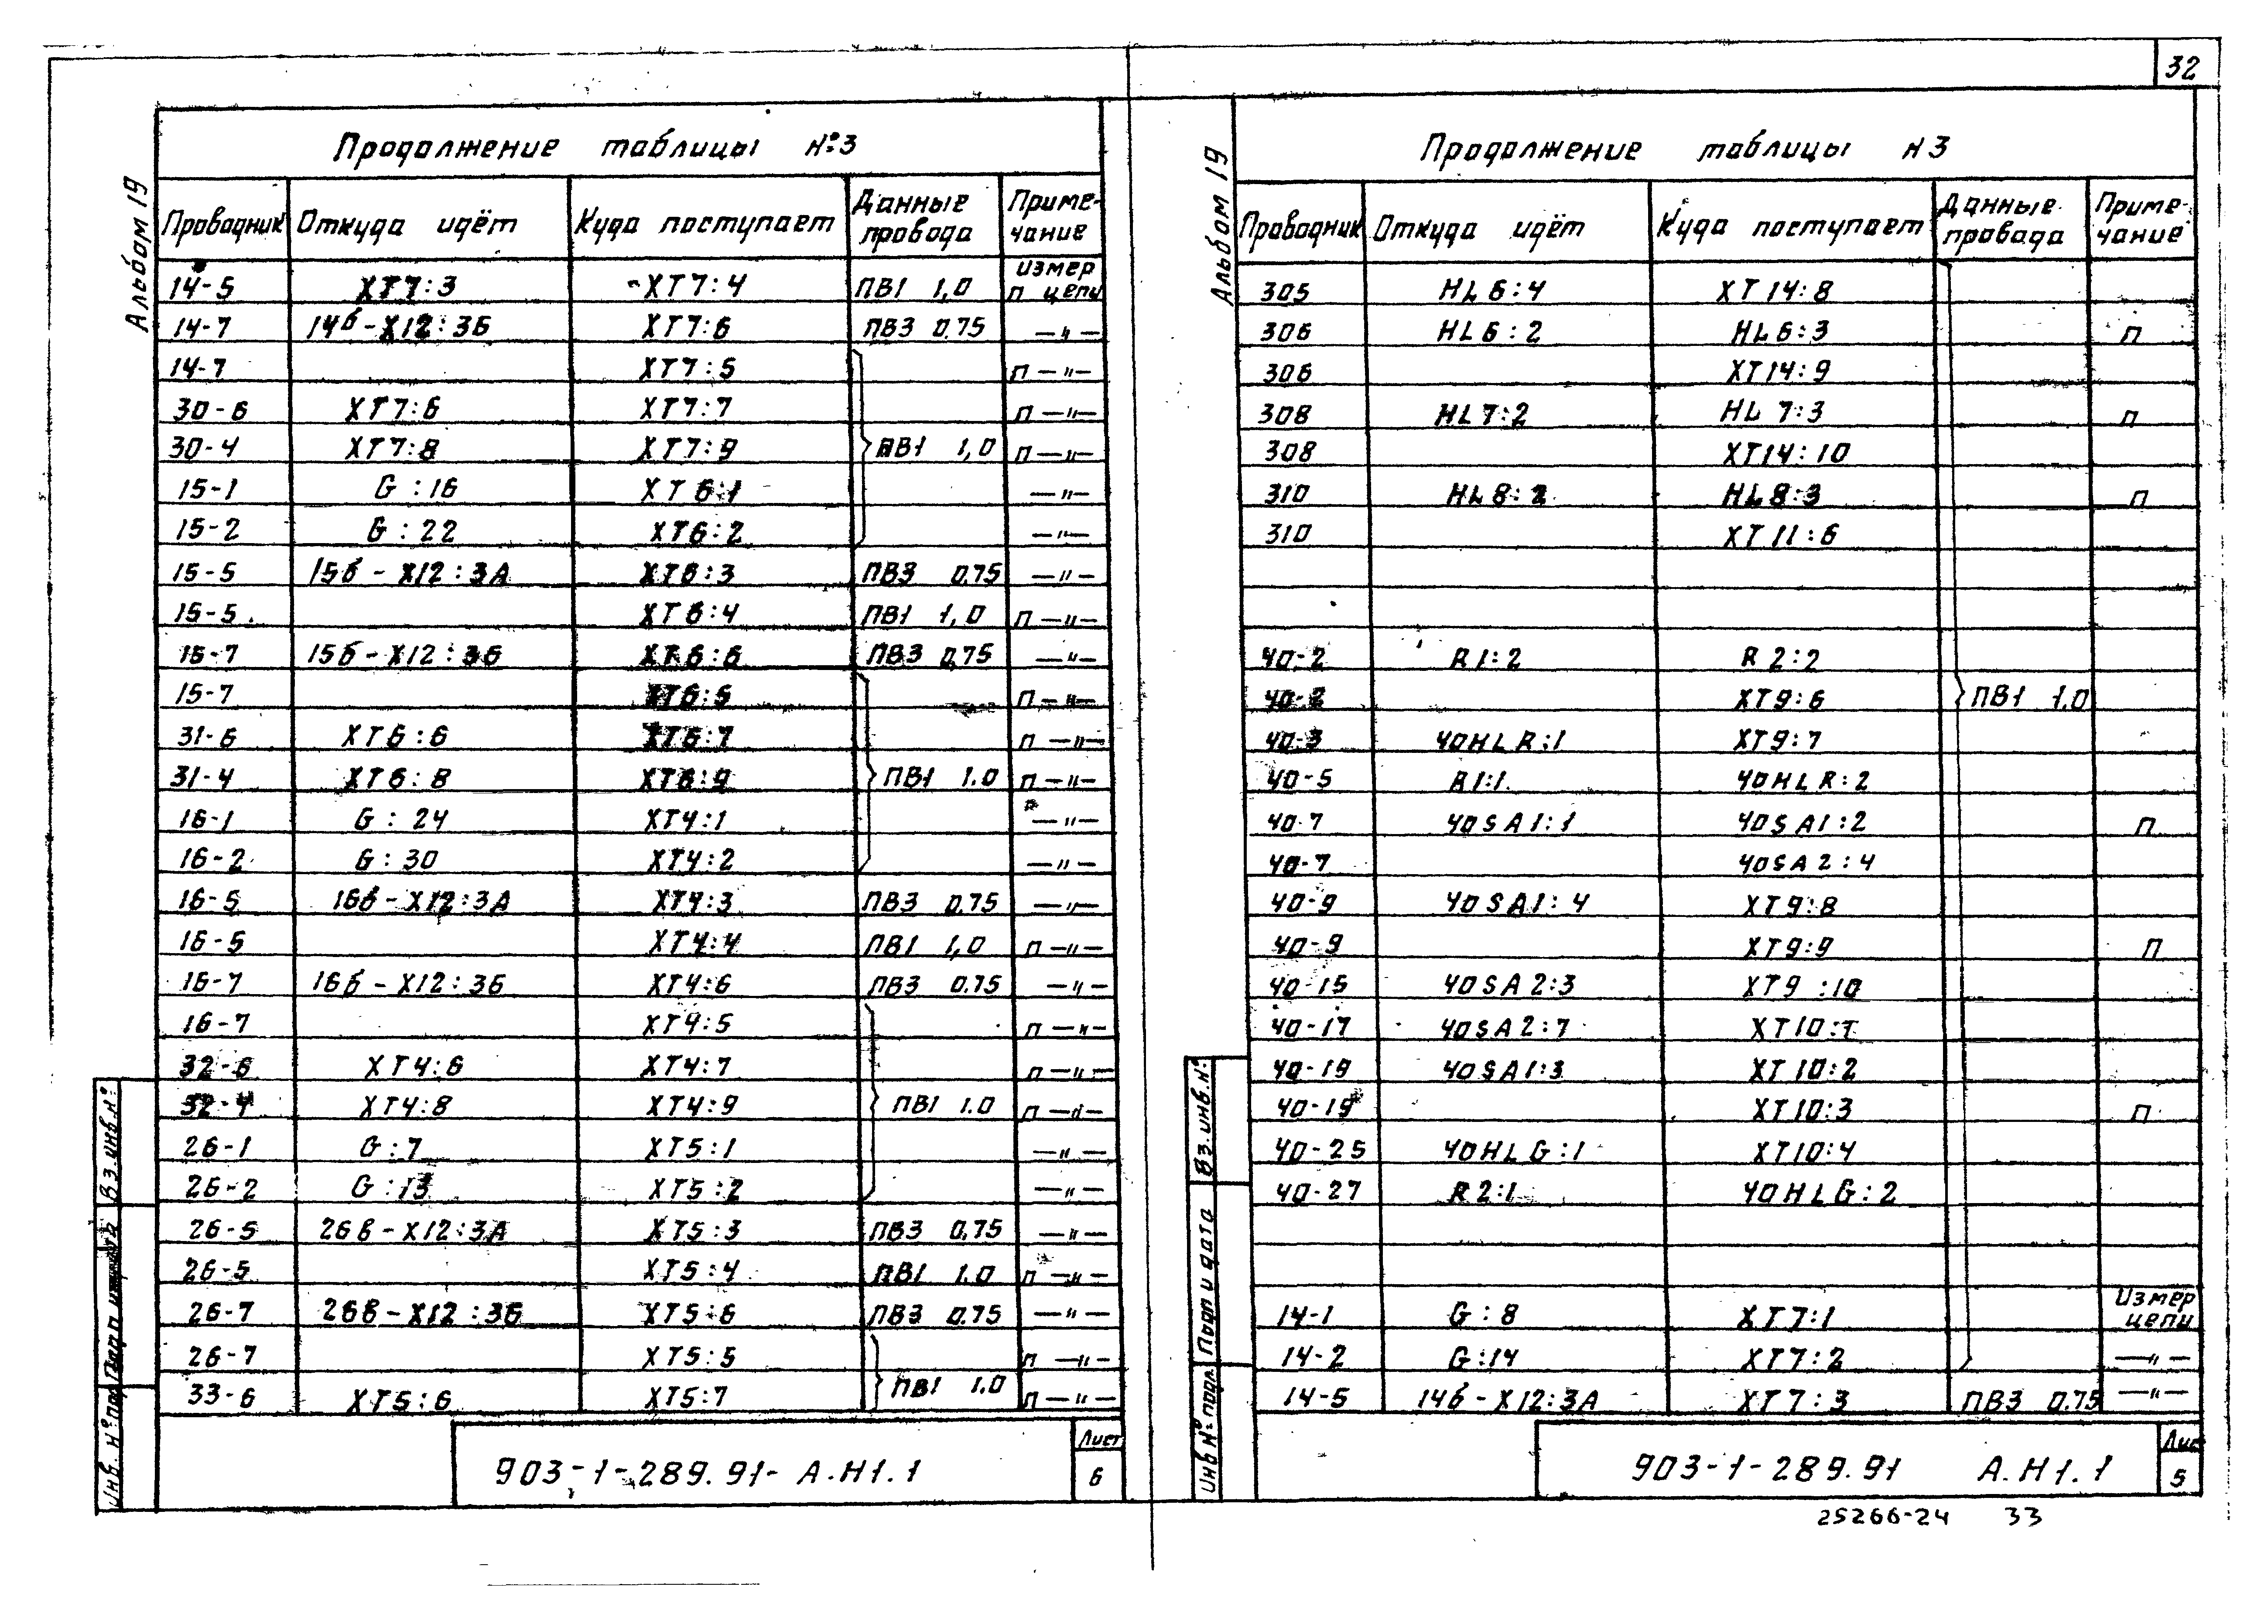 32
Альбом 19
Продолжение таблицы №3
Проводник Откуда идёт Куда поступает Данные провода Приме-чание
14-5 XT7:3 XT7:4 ПВ1 1,0 измер п цепи
14-7 14б-X12:3Б XT7:6 ПВ3 0.75 —"—
14-7 XT7:5 п —"—
30-6 XT7:6 XT7:7 п —"—
30-4 XT7:8 XT7:9 ПВ1 1,0 п —"—
15-1 G:16 XT6:1 —"—
15-2 G:22 XT6:2 —"—
15-5 15б-X12:3А XT6:3 ПВ3 0.75 —"—
15-5 XT6:4 ПВ1 1,0 п —"—
15-7 15б-X12:3б XT6:6 ПВ3 0,75 —"—
15-7 XT6:5 п —"—
31-6 XT6:6 XT6:7 п —"—
31-4 XT6:8 XT6:9 ПВ1 1.0 п —"—
16-1 G:24 XT4:1 —"—
16-2 G:30 XT4:2 —"—
16-5 16в-X12:3А XT4:3 ПВ3 0.75 —"—
16-5 XT4:4 ПВ1 1,0 п —"—
16-7 16б-X12:3б XT4:6 ПВ3 0.75 —"—
16-7 XT4:5 п —"—
32-6 XT4:6 XT4:7 п —"—
32-4 XT4:8 XT4:9 ПВ1 1.0 п —"—
26-1 G:7 XT5:1 —"—
26-2 G:13 XT5:2 —"—
26-5 26в-X12:3А XT5:3 ПВ3 0,75 —"—
26-5 XT5:4 ПВ1 1.0 п —"—
26-7 26в-X12:3б XT5:6 ПВ3 0.75 —"—
26-7 XT5:5 п —"—
33-6 XT5:6 XT5:7 ПВ1 1.0 п —"—
903-1-289.91- А.Н1.1
Лист
6
Вз.инв.№
Инв. №
Альбом 19
Продолжение таблицы N3
Проводник Откуда идёт Куда поступает Данные провода Приме-чание
305 HL6:4 XT14:8
306 HL6:2 HL6:3 п
306 XT14:9
308 HL7:2 HL7:3 п
308 XT14:10
310 HL8:2 HL8:3 п
310 XT11:6
40-2 R1:2 R2:2
40-2 XT9:6 ПВ1 1.0
40-3 40HLR:1 XT9:7
40-5 R1:1 40HLR:2
40-7 40SA1:1 40SA1:2 п
40-7 40SA2:4
40-9 40SA1:4 XT9:8
40-9 XT9:9 п
40-15 40SA2:3 XT9:10
40-17 40SA2:7 XT10:1
40-19 40SA1:3 XT10:2
40-19 XT10:3 п
40-25 40HLG:1 XT10:4
40-27 R2:1 40HLG:2
14-1 G:8 XT7:1 Измер цепи
14-2 G:14 XT7:2 —"—
14-5 14б-X12:3А XT7:3 ПВ3 0.75 —"—
903-1-289.91 А.Н1.1
5
Вз.инв.№
Подп и дата
Инв № подл
25266-24 33